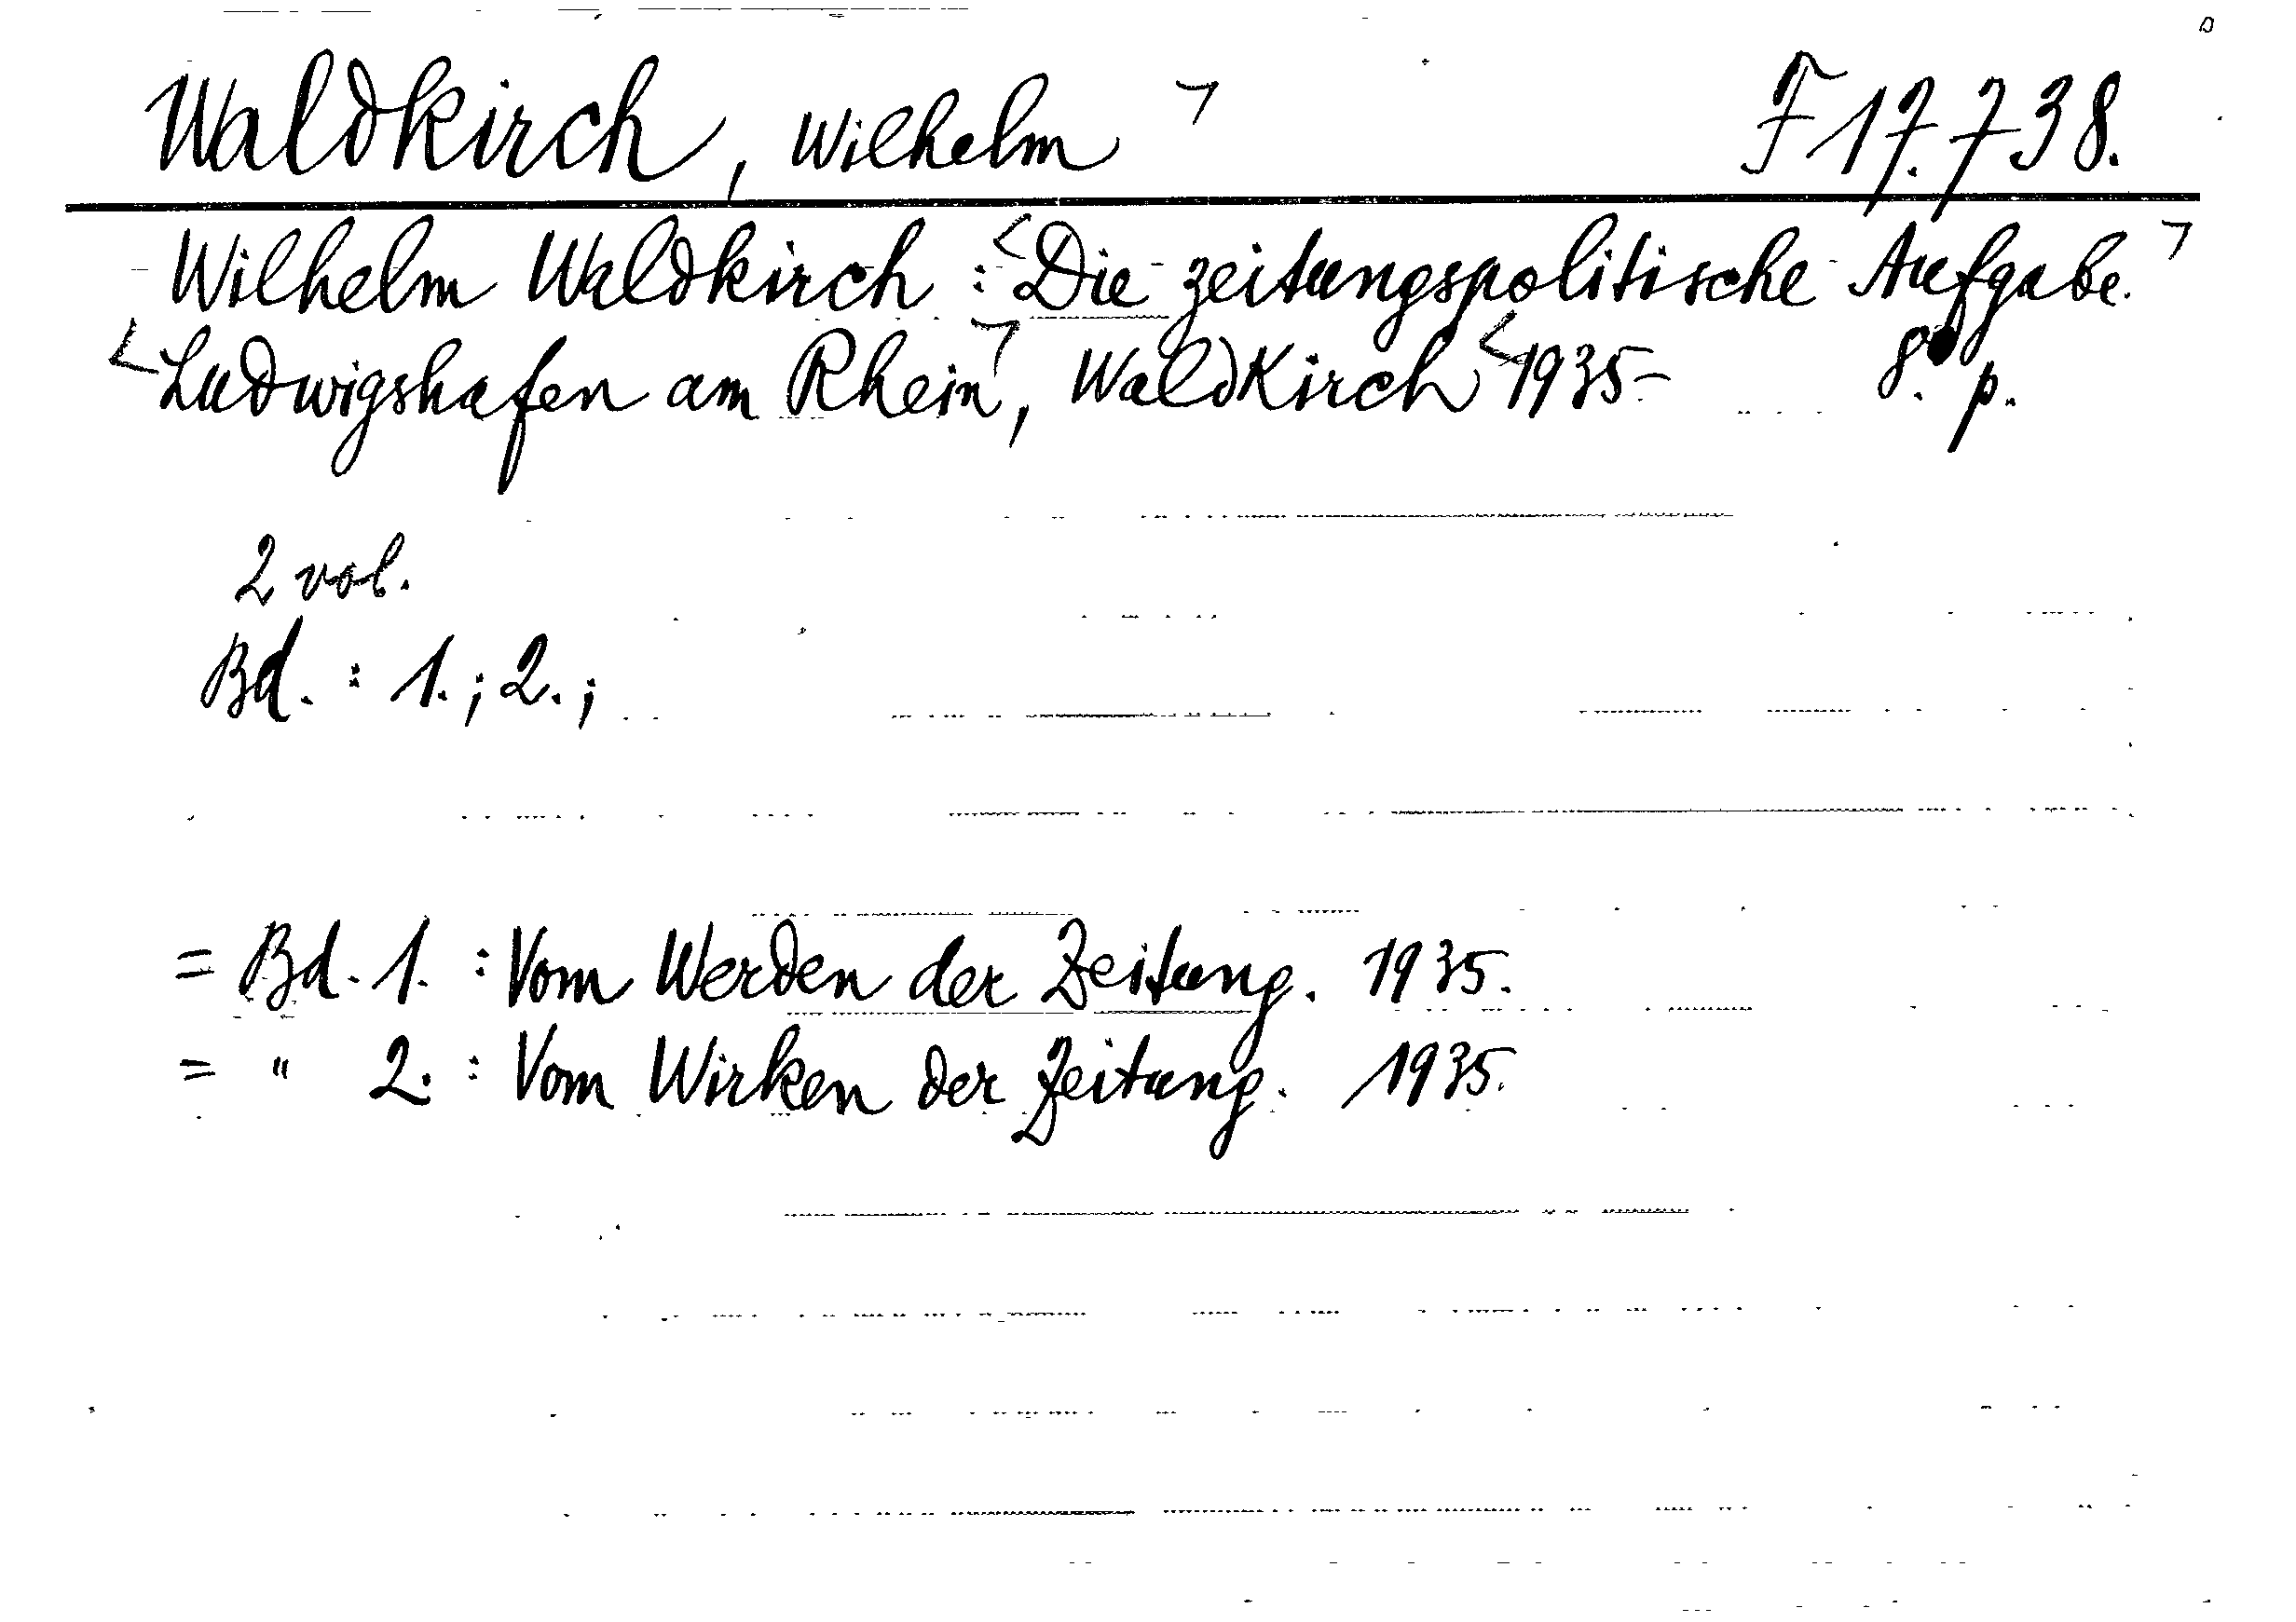 Waldkirch, Wilhelm ¬ F 17.738.
Wilhelm Waldkirch : <Die zeitungspolitische Aufgabe.¬
<Ludwigshafen am Rhein¬, Waldkirch <1935- 8° p.
2 vol.
Bd. : 1.; 2.;
= Bd. 1. : Vom Werden der Zeitung. 1935.
= " 2. : Vom Wirken der Zeitung. 1935.